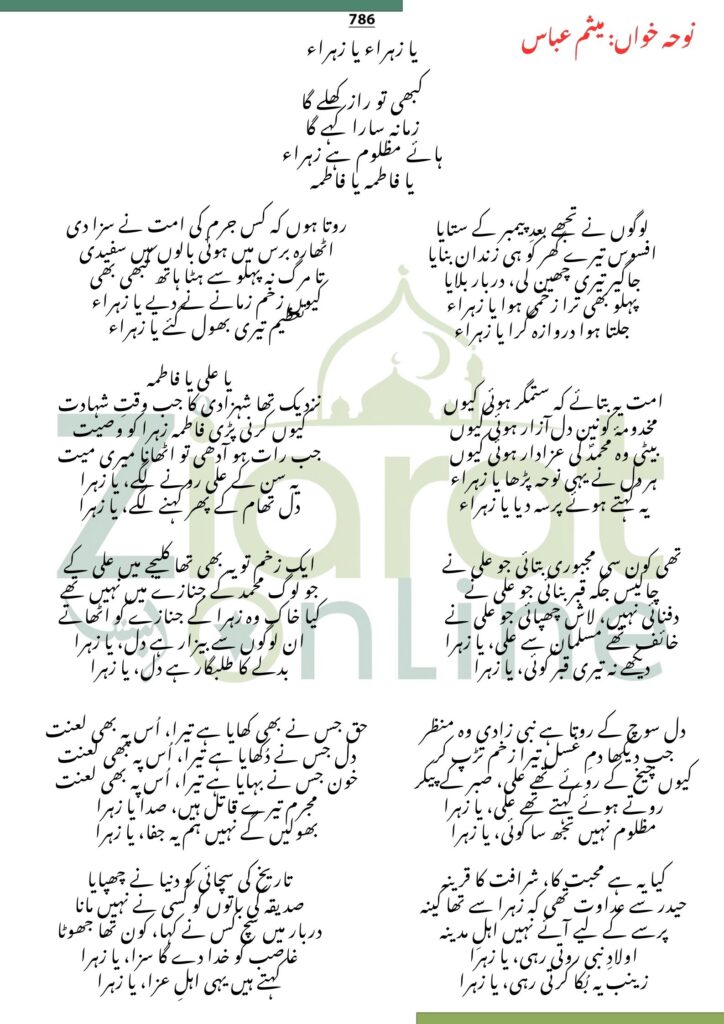 786
نوحہ خواں: میثم عباس
یا زہراء یا زہراء
کبھی تو راز کھلے گا
زمانہ سارا کہے گا
ہائے مظلوم ہے زہراء
یا فاطمہ یا فاطمہ
لوگوں نے تجھے بعدِ پیمبر کے ستایا
افسوس تیرے گھر کو ہی زندان بنایا
جاگیر تیری چھین لی، دربار بلایا
پہلو بھی ترا زخمی ہوا یا زہراء
جلتا ہوا دروازہ گرا یا زہراء
روتا ہوں کہ کس جرم کی امت نے سزا دی
اٹھارہ برس میں ہوئی بالوں میں سفیدی
تا مرگ نہ پہلو سے ہٹا ہاتھ کبھی بھی
کیوں زخم زمانے نے دیے یا زہراء
تعظیم تیری بھول گئے یا زہراء
امت یہ بتائے کہ ستمگر ہوئی کیوں
مخدومۂ کونین دل آزار ہوئی کیوں
بیٹی وہ محمدؐ کی عزادار ہوئی کیوں
ہر دل نے یہی نوحہ پڑھا یا زہراء
یہ کہتے ہوئے پرسہ دیا یا زہراء
یا علی یا فاطمہ
نزدیک تھا شہزادی کا جب وقتِ شہادت
کیوں کرنی پڑی فاطمہ زہرا کو وصیت
جب رات ہو آدھی تو اٹھانا میری میت
یہ سن کے علی رونے لگے، یا زہرا
دل تھام کے پھر کہنے لگے، یا زہرا
تھی کون سی مجبوری بتائی جو علی نے
چالیس جگہ قبر بنائی جو علی نے
دفنائی نہیں، لاش چھپائی جو علی نے
خائف تھے مسلمان سے علی، یا زہرا
دیکھے نہ تیری قبر کوئی، یا زہرا
ایک زخم تو یہ بھی تھا کلیجے میں علی کے
جو لوگ محمد کے جنازے میں نہیں تھے
کیا خاک وہ زہرا کے جنازے کو اٹھاتے
ان لوگوں سے بیزار ہے دل، یا زہرا
بدلے کا طلبگار ہے دل، یا زہرا
دل سوچ کے روتا ہے نبی زادی وہ منظر
جب دیکھا دمِ غسل تیرا زخم تڑپ کر
کیوں چیخ کے روئے تھے علی، صبر کے پیکر
روتے ہوئے کہتے تھے علی، یا زہرا
مظلوم نہیں تجھ سا کوئی، یا زہرا
حق جس نے بھی کھایا ہے تیرا، اُس پہ بھی لعنت
دل جس نے دُکھایا ہے تیرا، اُس پہ بھی لعنت
خون جس نے بہایا ہے تیرا، اُس پہ بھی لعنت
مجرم تیرے قاتل ہیں، صدا یا زہرا
بھولیں گے نہیں ہم یہ جفا، یا زہرا
کیا یہ ہے محبت کا، شرافت کا قرینہ
حیدر سے عداوت تھی کہ زہرا سے تھا کینہ
پرسے کے لیے آئے نہیں اہلِ مدینہ
اولادِ نبی روتی رہی، یا زہرا
زینب یہ بُکا کرتی رہی، یا زہرا
تاریخ کی سچائی کو دنیا نے چھپایا
صدیقہ کی باتوں کو کسی نے نہیں مانا
دربار میں سچ کس نے کہا، کون تھا جھوٹا
غاصب کو خدا دے گا سزا، یا زہرا
کہتے ہیں یہی اہلِ عزا، یا زہرا
Ziarat
Online